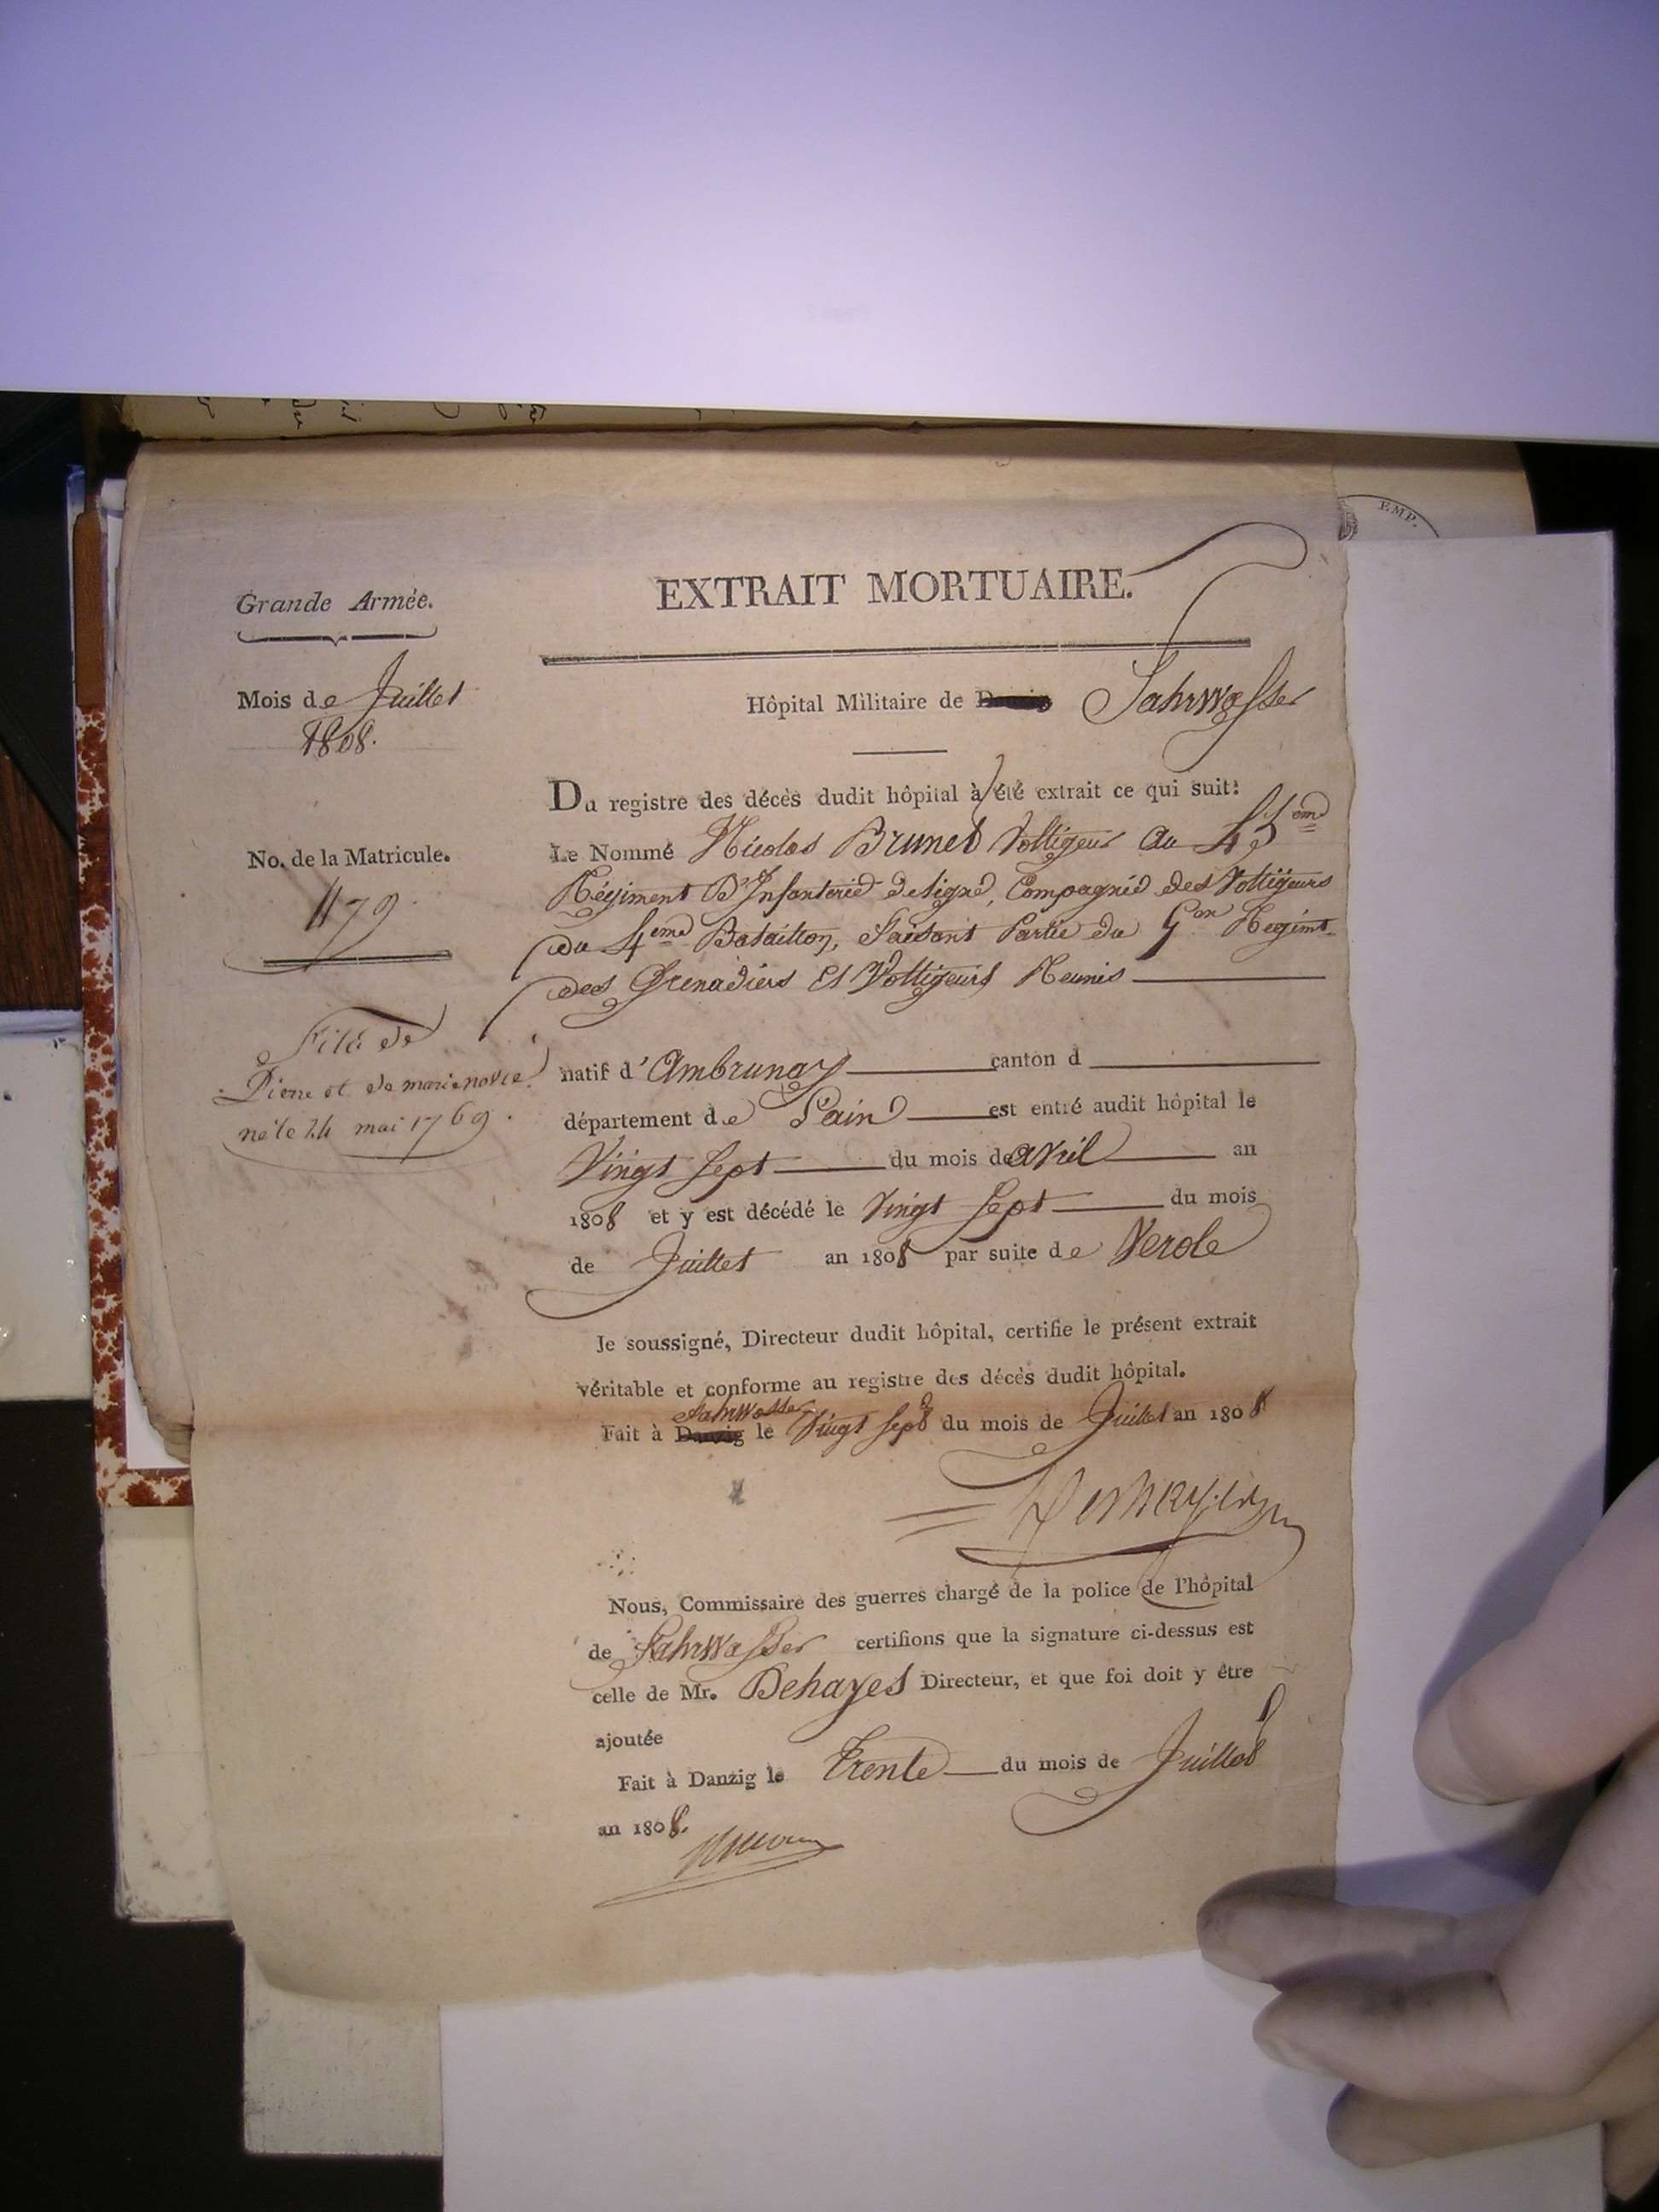 EMP.
EXTRAIT MORTUAIRE.
Grande Armée.
Mois de Juillet
1808.
Hôpital Militaire de Danzig Fahrwasser
Du registre des décès dudit hôpital à été extrait ce qui suit:
No. de la Matricule.
1179
Le Nommé Nicolas Brunet Voltigeur au
Régiment D'Infanterie de ligne, Compagnie des Voltigeurs
du 4eme Bataillon, faisant Partie du Regimt
des Grenadiers Et Voltigeurs Reunis
Fils de
Pierre et de marie
né le 24 mai 1769.
natif d'Ambrunay canton d
département de L'ain est entré audit hôpital le
Vingt Sept du mois de avril an
1808 et y est décédé le Vingt Sept du mois
de Juillet an 1808 par suite de Verole
Je soussigné, Directeur dudit hôpital, certifie le présent extrait
véritable et conforme au registre des décès dudit hôpital.
Fahrwasser
Fait à Danzig le Vingt Sept du mois de Juillet an 1808
Nous, Commissaire des guerres chargé de la police de l'hôpital
de Fahrwasser certifions que la signature ci-dessus est
celle de Mr. Dehayes Directeur, et que foi doit y être
ajoutée
Fait à Danzig le Trente du mois de Juillet
an 1808.